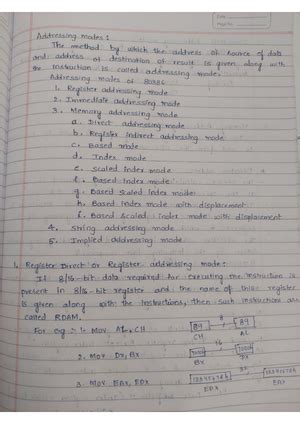 Addressing modes :
The method by which the address of source of data
and address of destination of result is given along with
the instruction is called addressing mode.
Addressing modes of 80386
1. Register addressing mode
2. Immediate addressing mode
3. Memory addressing mode
a. Direct addressing mode
b. Register Indirect addressing mode
c. Based mode
d. Index mode
e. Scaled Index mode
f. Based Index mode
g. Based Scaled Index mode
h. Based Index mode with displacement
i. Based Scaled Index mode with displacement
4. String addressing mode
5. Implied addressing mode
1. Register Direct or Register addressing mode :
If 8/16-bit data required for executing the instruction is
present in 8/16-bit register and the name of this register
is given along with the instructions, then such instruction are
called RDAM.
For eg :- 1. Mov AL, CH
89 8 89
CH AL
2. Mov Dx, Bx
16
Bx Dx
3. Mov EBx, EDx
EDx EBx